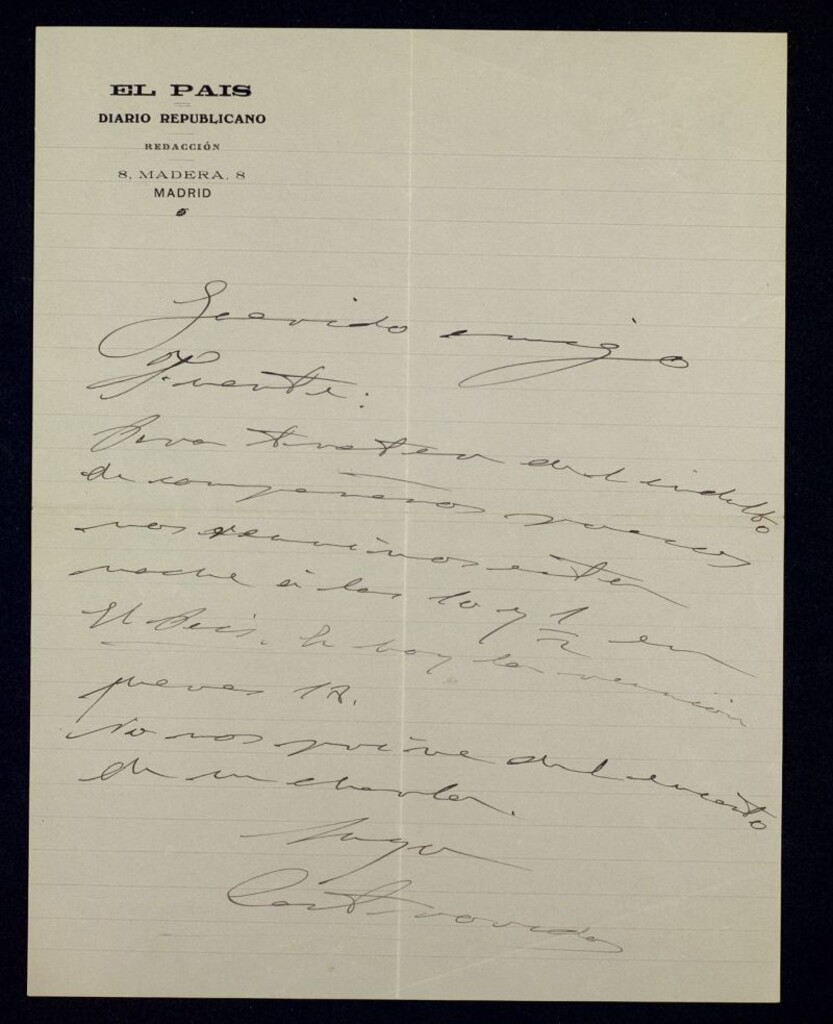 EL PAIS
DIARIO REPUBLICANO
REDACCIÓN
8, MADERA, 8
MADRID
Querido amigo
Fuente:
Para tratar del indulto
de compañeros presos
nos reunimos esta
noche á las 10 y 1/2 en
El Pais. Es hoy la reunión
jueves 12.
No nos prive del encanto
de su charla.
Suyo
Castrovido